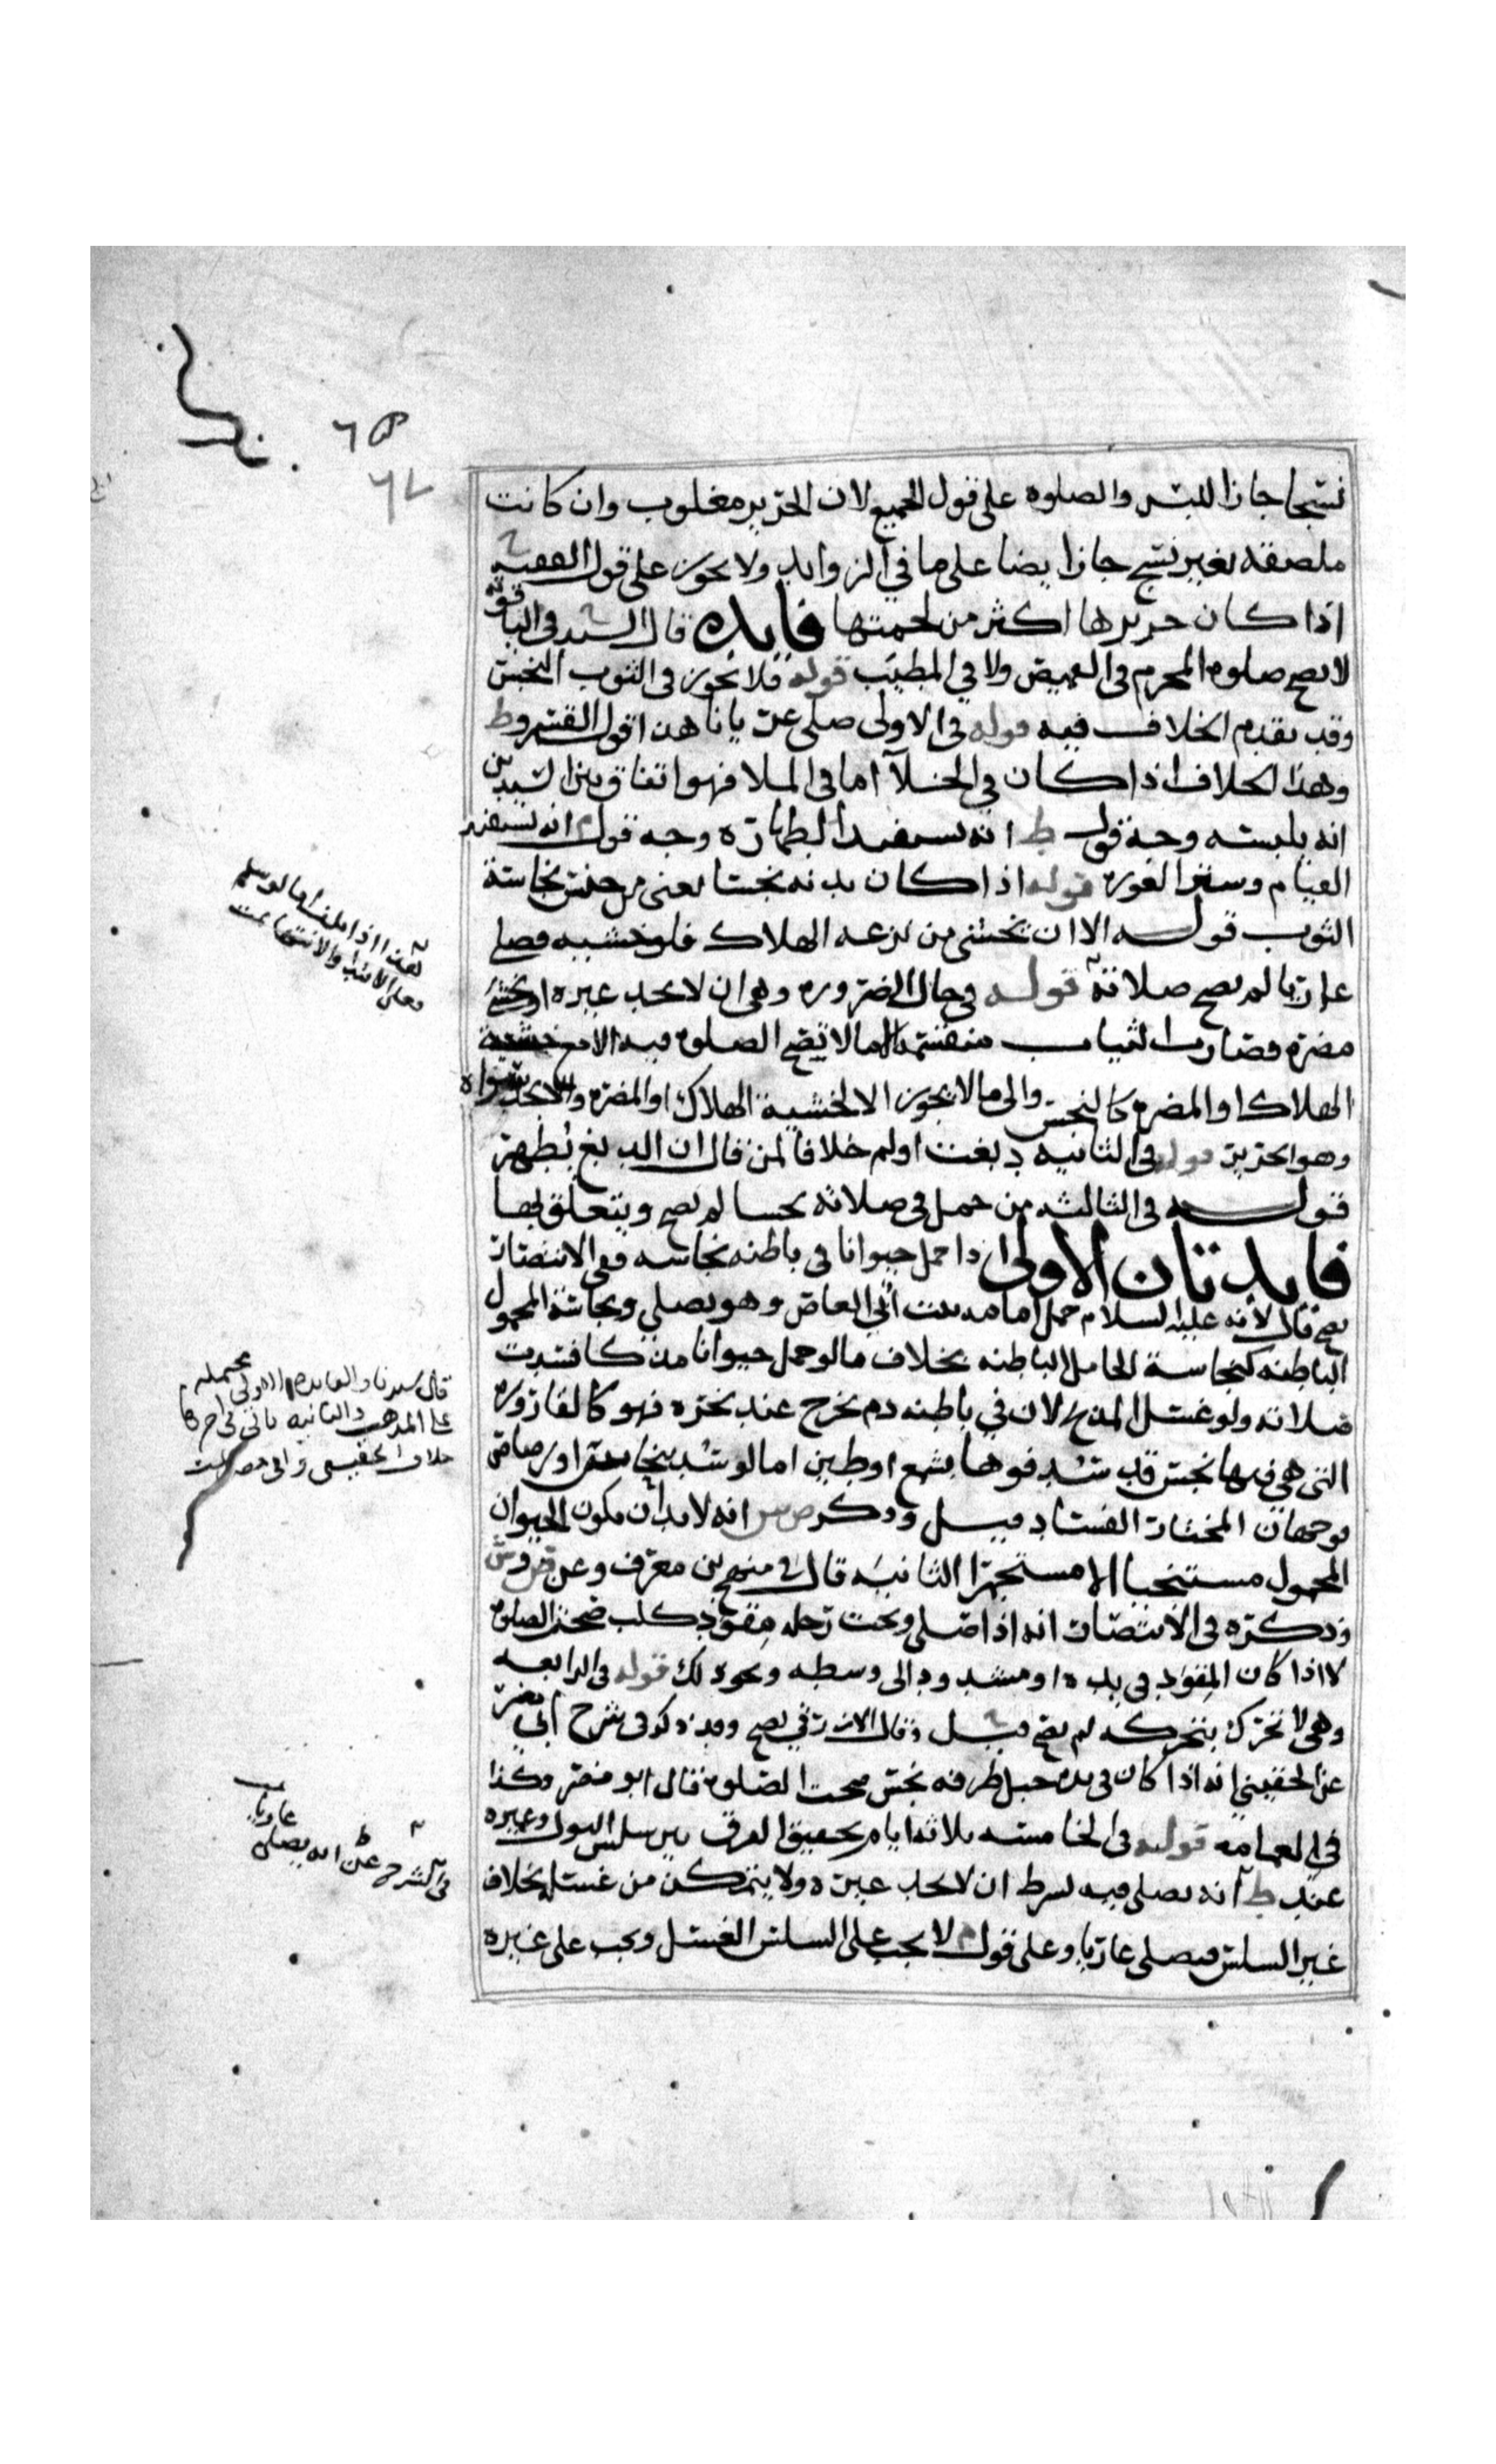 نسجا جاز اللبس والصلوه على قول الجميع لان الحرير مغلوب وان كانت
ملصقه بغير نسج جاز ايضا على ما في الزوايد ولا يجوز على قول الفقيه
اذا كان حريرها اكثر من لحمتها فايده قال السيد في الياقوته
لا يصح صلوه المحرم في القميص ولا في المطيب قوله فلا يجوز في الثوب النجس
وقد تقدم الخلاف فيه قوله في الاولى صلى عريانا هذا قول
وهذا الخلاف اذا كان في الخلا اما في الملا فهو اتفاق بين السيدين
انه يلبسه وجه قول ط انه يستفيد الطهاره وجه قول م انه يستفيد
القيام وستر العوره قوله اذا كان بدنه نجسا يعني من جنس نجاسة
الثوب قوله الا ان يخشى من نزعه الهلاك فلو خشيه فصلى
عاريا لم يصح صلاته قوله في حال الضروره وهي ان لا يجد غيره او يخشى
مضره فصارت الثياب منقسمة الى ما لا تصح الصلوه فيه الا مع خشية
الهلاك او المضره كالنجس والى ما لا يجوز الا لخشية الهلاك او المضره والا يجد سواه
وهو الحرير قوله في الثانيه دبغت او لم خلافا لمن قال ان الدبغ يطهر
قوله في الثالثه من حمل في صلاته نجسا لم يصح ويتعلق بها
فايدتان الاولى اذا حمل حيوانا في باطنه نجاسه ففي الانتصار
يصح قال لانه عليه السلام حمل امامه بنت ابي العاص وهو يصلي ونجاسة المحمول
الباطنه كنجاسة الحامل الباطنه بخلاف ما لو حمل حيوانا مذكا فسدت
صلاته ولو غسل المذبح لان في باطنه دم يخرج عند نحره فهو كالقاروره
التي هي فيها نجس قد شد فوها بشمع او طين اما لو شد بنحاس او رصاص
فوجهان المختار الفساد قيل وذكر ص ش انه لا بد ان يكون الحيوان
المحمول مستنجيا لا مستجمرا الثانيه قال في منهج بن معرف وعن ص وش
وذكره في الانتصار انه اذا صلى وتحت رجله مقود كلب صحت الصلوه
لا اذا كان المقود في يده او مشدود الى وسطه ونحو ذلك قوله في الرابعه
وهي لا تحرك بتحركه لم يصح قيل وقال الازرقي يصح ومذكور في شرح ابي مضر
عن الحقيني انه اذا كان في يده حبل طرفه نجس صحت الصلوه قال ابو مضر وكذا
في العمامه قوله في الخامسه ثلاثه ايام تحقيق الفرق بين سلس البول وغيره
عند ط انه يصلي فيه بشرط ان لا يجد غيره ولا يتمكن من غسله بخلاف
غير السلس فيصلي عاريا وعلى قول م لا يجب على السلس الغسل ويجب على غيره
قال سيدنا والفايده الاولى محتمله
على المذهب والثانيه ياتي في اخرها
خلاف الحقيني وابي مضر
في الشرح عن ط انه يصلي
عاريا